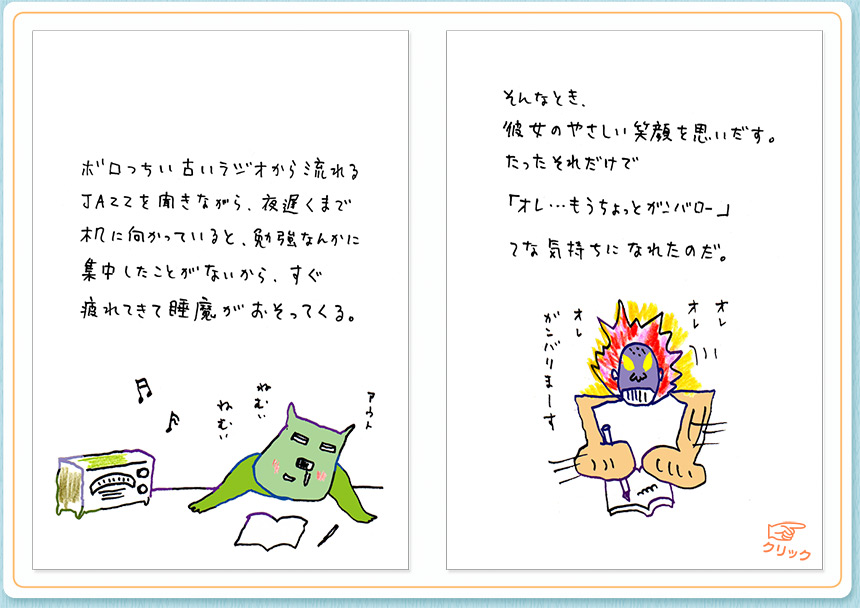 ボロっちい古いラジオから流れる
JAZZを聞きながら、夜遅くまで
机に向かっていると、勉強なんかに
集中したことがないから、すぐ
疲れてきて睡魔がおそってくる。
ねむい
ねむい
アウト
そんなとき、
彼女のやさしい笑顔を思いだす。
たったそれだけで
「オレ…もうちょっとガンバロー」
てな気持ちになれたのだ。
オレ
オレ
オレ
がンバりまーす
クリック